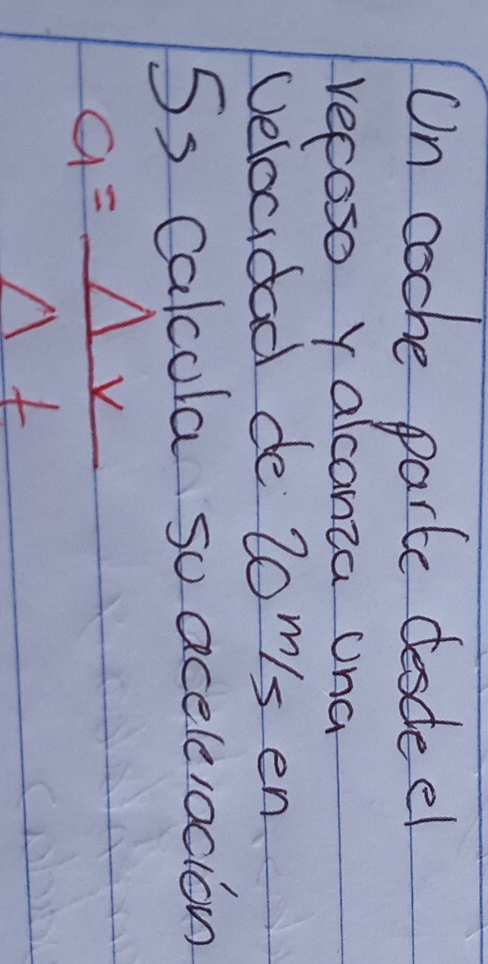 Un coche parte desde el
reposo y alcanza una
velocidad de 20 m/s en
5s calcula su aceleración
a = Δv
Δt